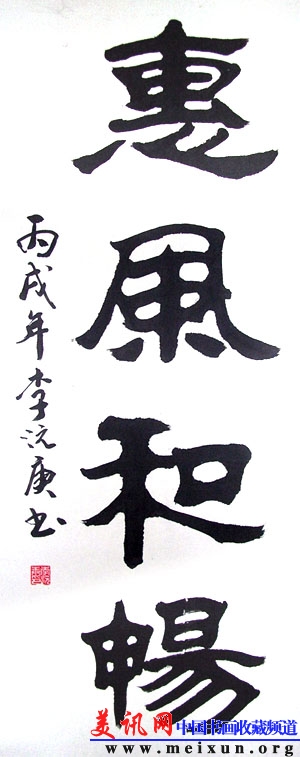 惠風和暢
丙戌年李沅庚书
美讯网 中国书画收藏频道
www.meixun.org